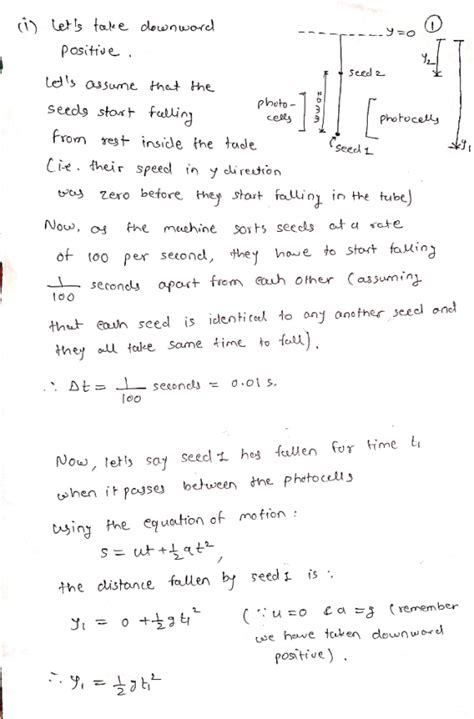 (i) Let's take downward
positive.
Let's assume that the
seeds start falling
from rest inside the tude
(i.e. their speed in y direction
was zero before they start falling in the tube)
①
y=0
y₂
seed 2
photo-
cells
photocells
seed 1
y₁
Now, as the machine sorts seeds at a rate
of 100 per second, they have to start falling
1/100 seconds apart from each other (assuming
that each seed is identical to any another seed and
they all take same time to fall).
∴ Δt = 1/100 seconds = 0.01 s.
Now, let's say seed 1 has fallen for time t₁
when it passes between the photocells
using the equation of motion :
s = ut + ½at²,
the distance fallen by seed 1 is :
y₁ = 0 + ½gt₁² (∵ u=0 & a=g (remember
we have taken downward
positive).
∴ y₁ = ½gt₁²